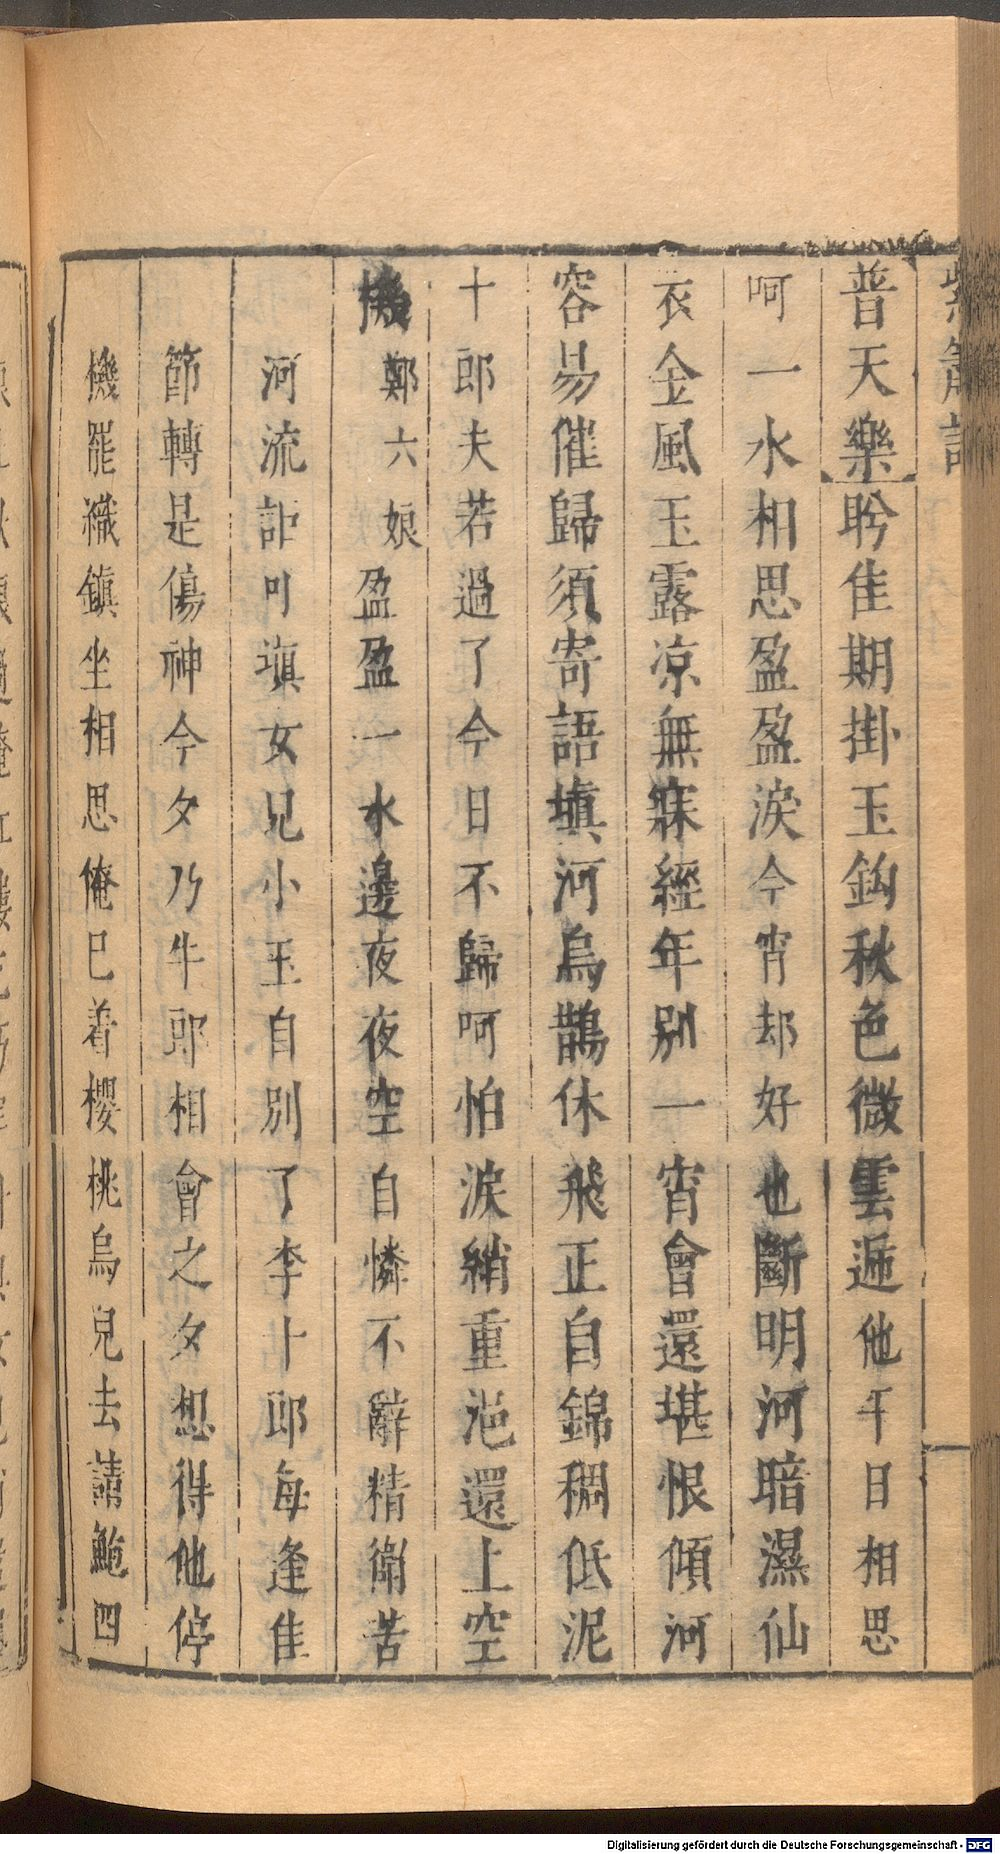 紫簫記
普天樂盻佳期掛玉鈎秋色微雲逓他年日相思
呵一水相思盈盈淚今宵却好也斷明河暗濕仙
衣金風玉露凉無寐經年别一宵會還堪恨傾河
容易催歸須寄語塡河烏鵲休飛正自錦稠低泥
十郎夫若過了今日不歸呵怕淚綃重浥還上空
機鄭六娘盈盈一水邊夜夜空自憐不辭精衛苦
河流詎可塡女兒小玉自别了李十郎每逢佳
節轉是傷神今夕乃牛郎相會之夕想得他停
機罷織鎮坐相思俺已着櫻桃烏兒去請鮑四
Digitalisierung gefördert durch die Deutsche Forschungsgemeinschaft - DFG